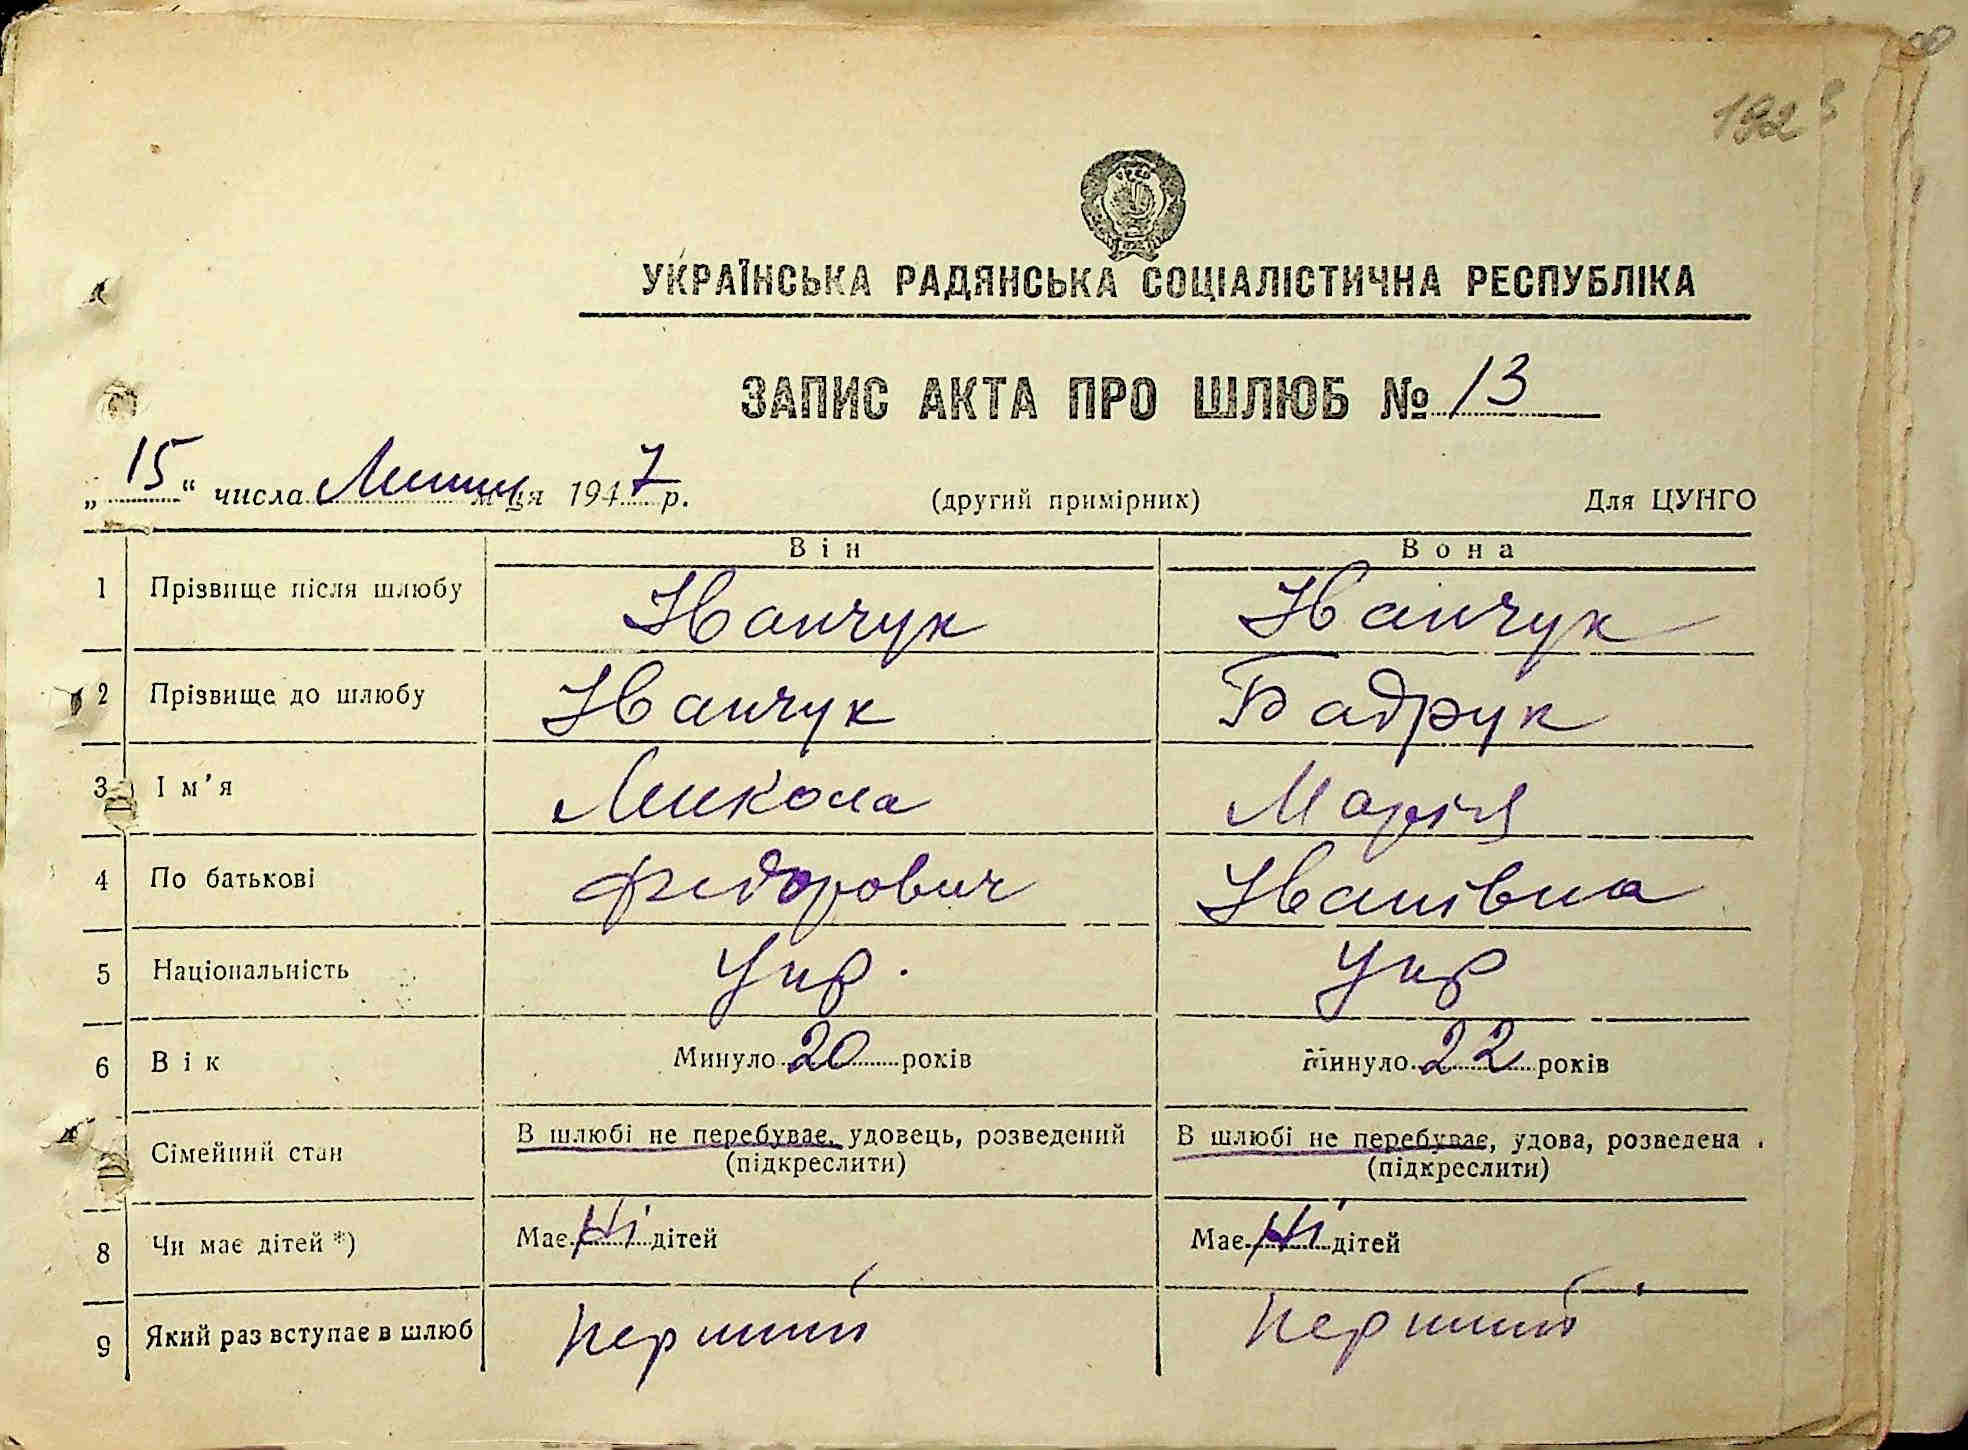 192
УКРАЇНСЬКА РАДЯНСЬКА СОЦІАЛІСТИЧНА РЕСПУБЛІКА
ЗАПИС АКТА ПРО ШЛЮБ № 13
„15“ числа Липня м-ця 1947 р. (другий примірник) Для ЦУНГО
Він Вона
1 Прізвище після шлюбу Іванчук Іванчук
2 Прізвище до шлюбу Іванчук Бадрук
3 Ім'я Микола Марія
4 По батькові Федорович Іванівна
5 Національність Укр. Укр
6 Вік Минуло 20 років Минуло 22 років
Сімейний стан В шлюбі не перебуває, удовець, розведений В шлюбі не перебуває, удова, розведена
(підкреслити) (підкреслити)
8 Чи має дітей *) Має Ні дітей Має Ні дітей
9 Який раз вступає в шлюб перший перший